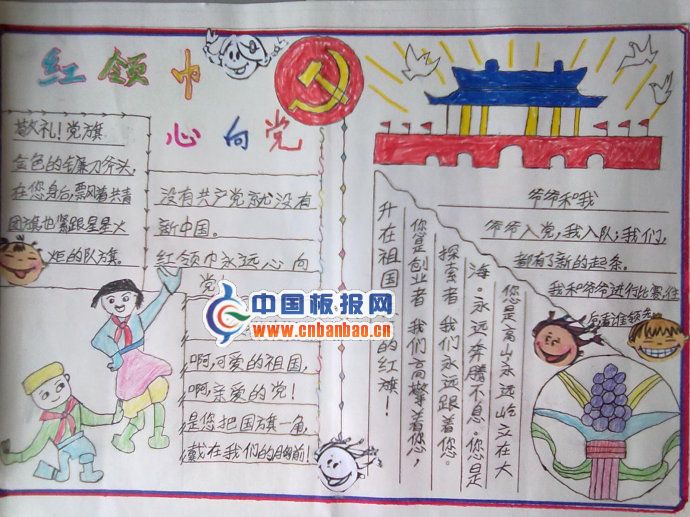 红领巾
心向党
敬礼!党旗
金色的镰刀斧头,
在您身后,飘风着共青
团旗也紧跟星星火
炬的队旗。
没有共产党就没有
新中国。
红领巾永远心向
党
啊,可爱的祖国,
啊,亲爱的党!
是您把国旗一角,
戴在我们的胸前!
中国板报网
www.cnbanbao.cn
爷爷和我
爷爷入党,我入队;我们,
都有3新的起条。
我和爷爷进行比赛,往
后看谁领先
您是高山永远屹立在大
海。永远奔腾不息。您是
探索者 我们永远跟着您。
您是创业者 我们高擎着您,
升在祖国 的红旗!